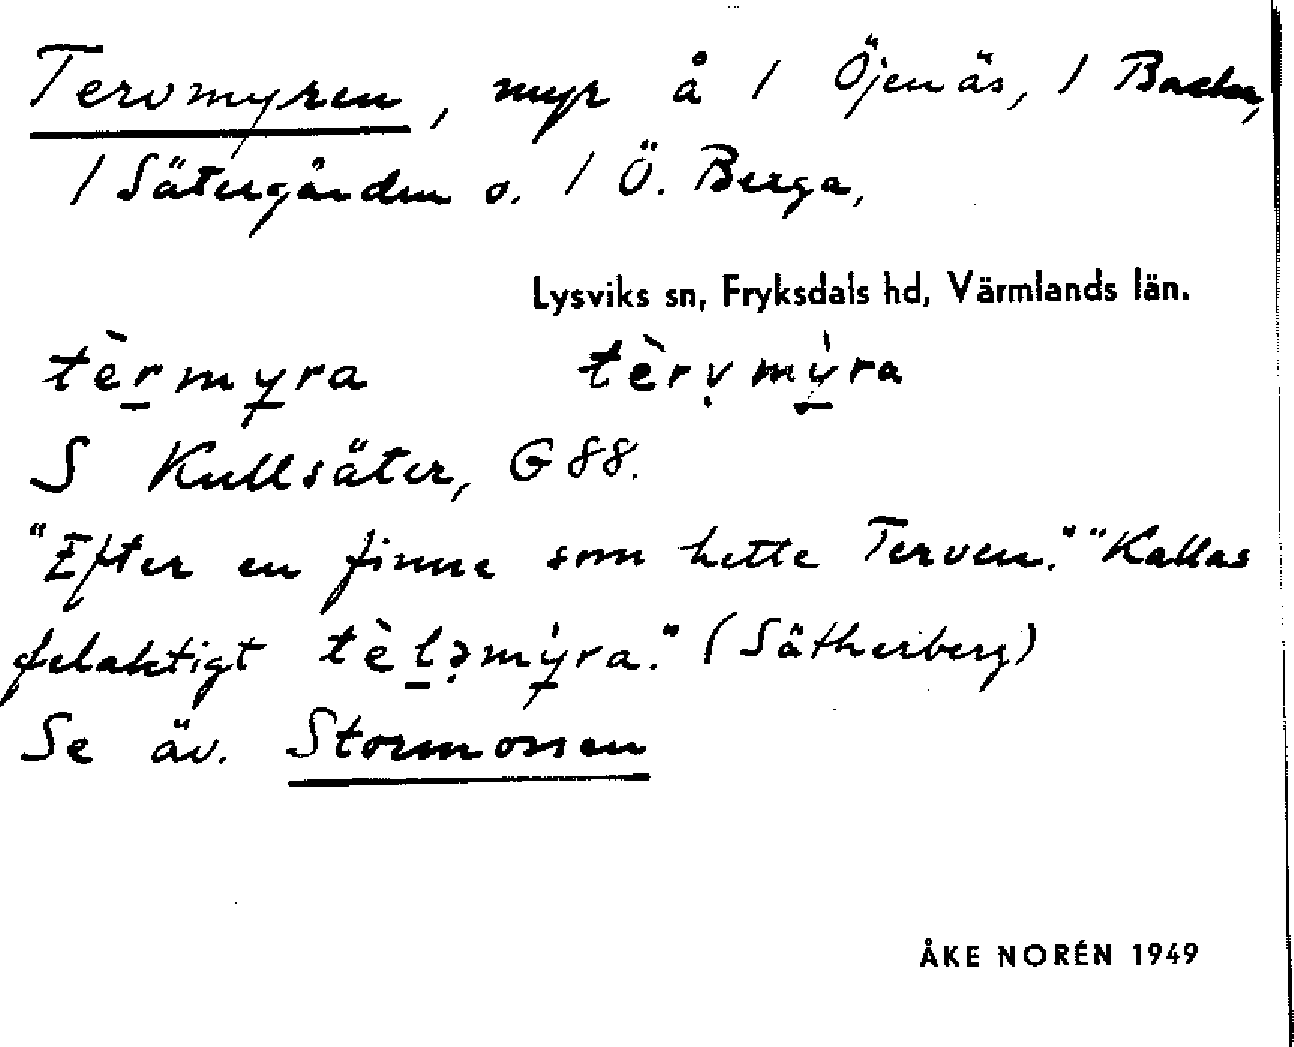 Tervmyren, myr å / Öjenäs, / Backa,
/ Sätergården o. / Ö. Berga,
Lysviks sn, Fryksdals hd, Värmlands län.
tèr̲my̲ra tèrṿmý̲ra
S Kullsäter, G 88.
"Efter en finne som hette Terven." "Kallas
felaktigt tèl̲ə̣mý̲ra." (Sätherberg)
Se äv. Stormossen
ÅKE NORÉN 1949